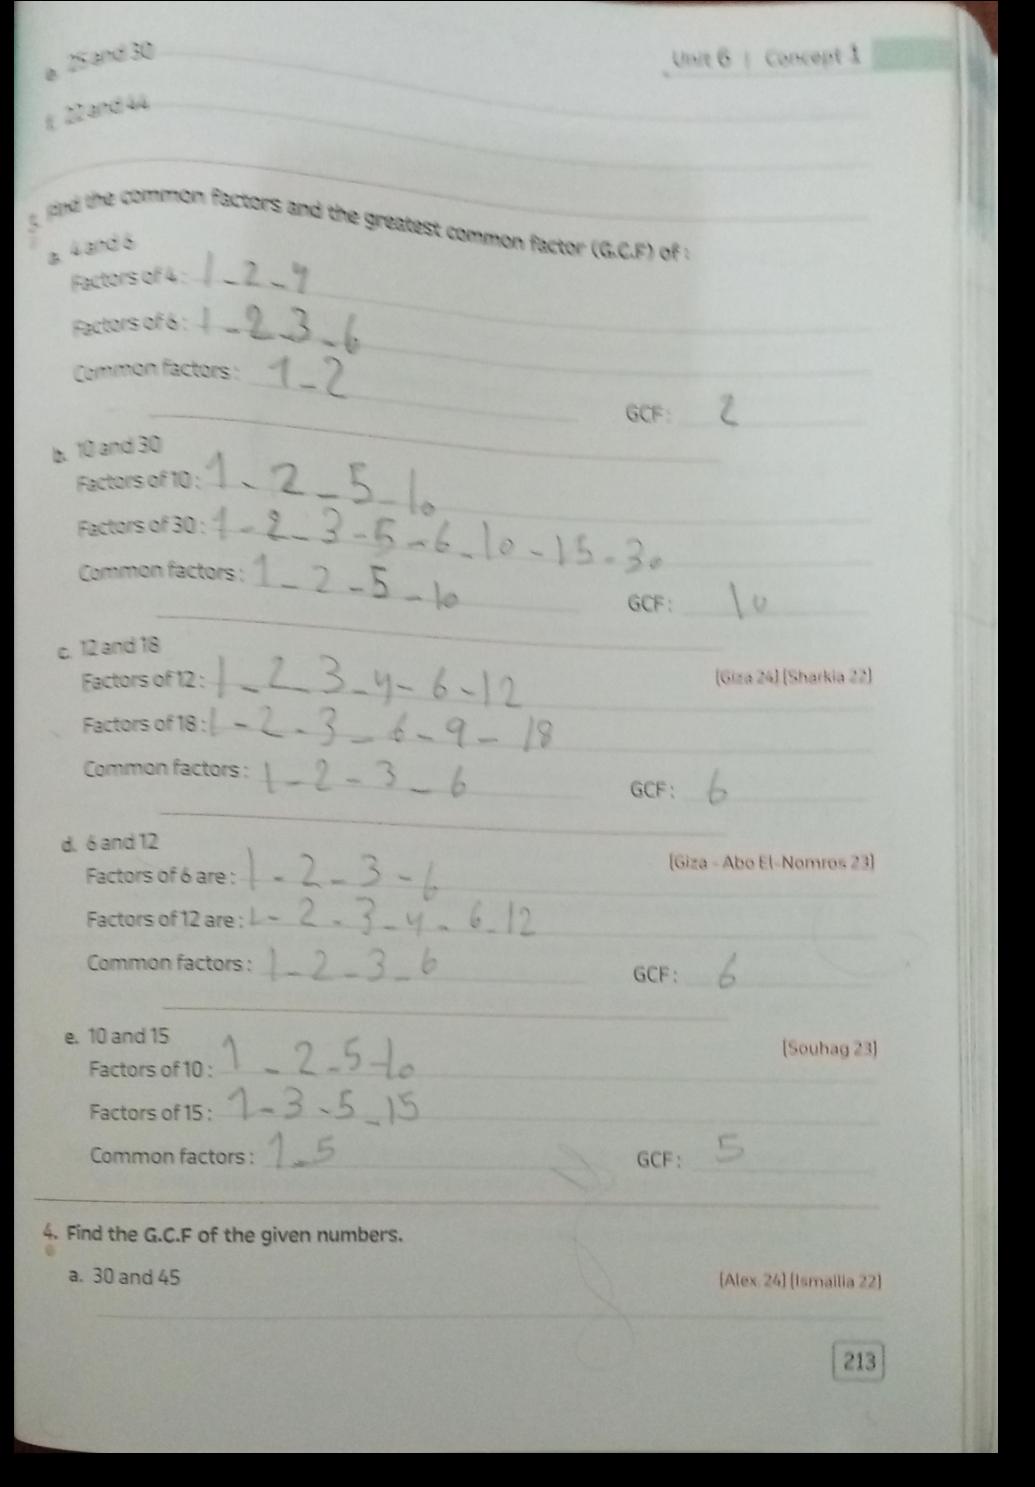 Unit 6 | Concept 1
e. 25 and 30
f. 22 and 44
3. Find the common factors and the greatest common factor (G.C.F) of :
a. 4 and 6
Factors of 4 : 1 - 2 - 4
Factors of 6 : 1 - 2 - 3 - 6
Common factors : 1 - 2
GCF : 2
b. 10 and 30
Factors of 10 : 1 - 2 - 5 - 10
Factors of 30 : 1 - 2 - 3 - 5 - 6 - 10 - 15 - 30
Common factors : 1 - 2 - 5 - 10
GCF : 10
c. 12 and 18
[Giza 24] [Sharkia 22]
Factors of 12 : 1 - 2 - 3 - 4 - 6 - 12
Factors of 18 : 1 - 2 - 3 - 6 - 9 - 18
Common factors : 1 - 2 - 3 - 6
GCF : 6
d. 6 and 12
[Giza - Abo El-Nomros 23]
Factors of 6 are : 1 - 2 - 3 - 6
Factors of 12 are : 1 - 2 - 3 - 4 - 6 - 12
Common factors : 1 - 2 - 3 - 6
GCF : 6
e. 10 and 15
[Souhag 23]
Factors of 10 : 1 - 2 - 5 - 10
Factors of 15 : 1 - 3 - 5 - 15
Common factors : 1 - 5
GCF : 5
4. Find the G.C.F of the given numbers.
a. 30 and 45
[Alex. 24] [Ismailia 22]
213